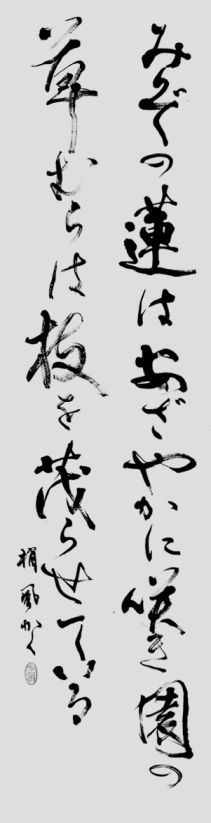 みぎての蓮はあざやかに咲き園の
草むらは枝を茂らせている
梢風かく